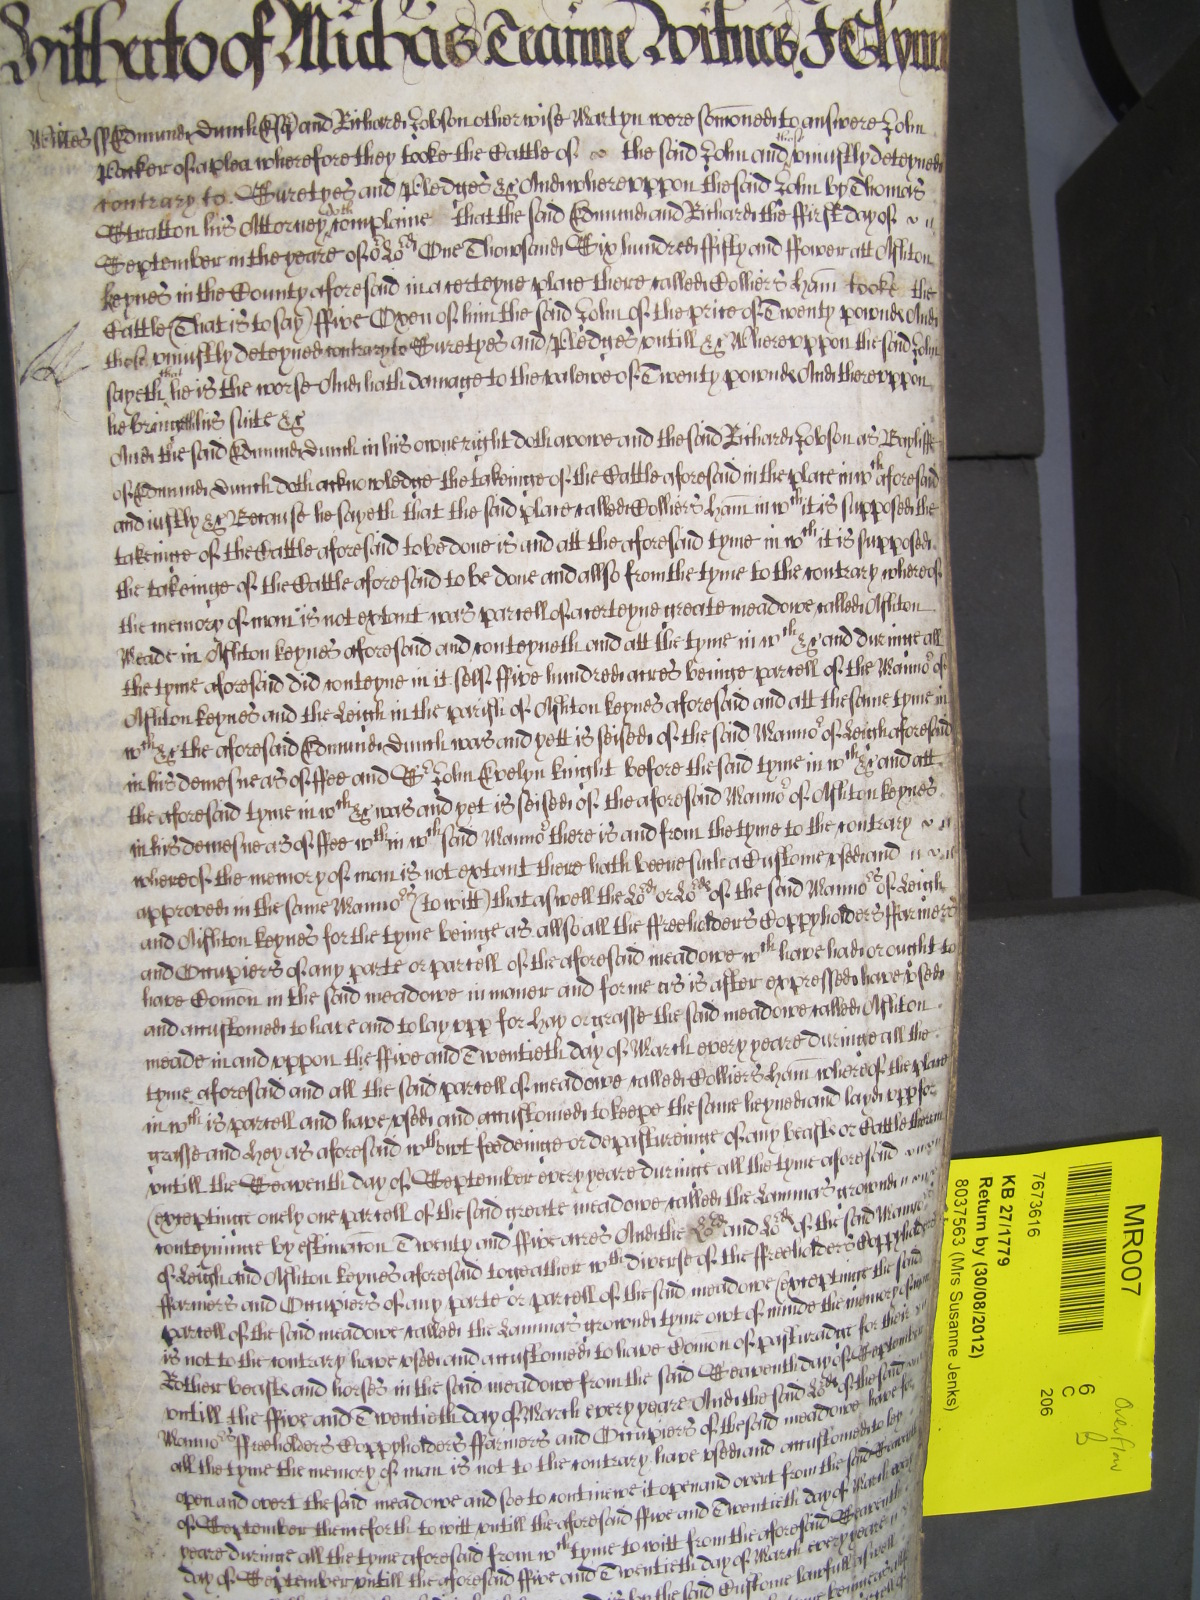 hitherto of Michās Tearme Witnes J Glynn
Wiltes ss Edmund Dunch Esqr and Richard Jobson otherwise Martyn were somōned to answere John
Packer of a plea wherefore they tooke the Cattle of the said John and them uniustly deteyned
contrary to Suretyes and Pledges &c And whereuppon the said John by Thomas
Stratton his Attorney doth complaine that the said Edmund and Richard the ffirst day of
September in the yeare of or Lord One Thowsand Six hundred ffifty and ffower att Ashton
keynes in the County aforesaid in a certeyne place there called Colliers Ham tooke the
Cattle (That is to say) ffive Oxen of him the said John of the price of Twenty pownds And
those uniustly deteyned contrary to Suretyes and Pledges untill &c Whereuppon the said John
sayeth that he is the worse And hath damage to the valewe of Twenty pownds And thereuppon
he bringeth his suite &c
And the said Edmund Dunch in his owne right doth avowe and the said Richard Jobson as Bayliffe
of Edmund Dunch doth acknowledge the takeinge of the Cattle aforesaid in the place in wth aforesaid
and iustly &c Because he sayeth that the said place called Colliers Ham in wth it is supposed the
takeinge of the Cattle aforesaid to be done is and att the aforesaid tyme in wth it is supposed
the takeinge of the Cattle aforesaid to be done and allso from the tyme to the contrary whereof
the memory of man is not extant was parcell of a certeyne greate meadowe called Ashton
Meade in Ashton keynes aforesaid and conteyneth and att the tyme in wth &c and duringe all
the tyme aforesaid did conteyne in it self ffive hundred acres beinge parcell of the Mannor of
Ashton keynes and the Leigh in the parish of Ashton keynes aforesaid and att the same tyme in
wth &c the aforesaid Edmund Dunch was and yett is seised of the said Mannor of Leigh aforesaid
in his demesne as of ffee and Sr John Evelyn knight before the said tyme in wth &c and att
the aforesaid tyme in wth &c was and yet is seised of the aforesaid Mannor of Ashton keynes
in his demesne as of ffee wthin wth said Mannor there is and from the tyme to the contrary
whereof the memory of man is not extant there hath beene such a Custome used and
approved in the same Mannors (to witt) that aswell the Lord or Lords of the said Mannors of Leigh
and Ashton keynes for the tyme beinge as allso all the ffreeholders Coppyholders ffarmers
and Occupiers of any parte or parcell of the aforesaid meadowe wth have had or ought to
have Comōn in the said meadowe in maner and forme as is after expressed have used
and accustomed to have and to lay upp for hay or grasse the said meadowe called Ashton
meade in and uppon the ffive and Twentieth day of March every yeare duringe all the
tyme aforesaid and all the said parcell of meadowe called Colliers Ham whereof the place
in wth is parcell and have used and accustomed to keepe the same heyned and layd upp for
grasse and hey as aforesaid wthowt feedeinge or depastureinge of any beasts or Cattle therein
untill the Seaventh day of September every yeare duringe all the tyme aforesaid
(exceptinge onely one parcell of the said greate meadowe called the Lammas grownd
conteyninge by estimacōn Twenty and ffive acres And the Lord and Lords of the said Mannors
of Leigh and Ashton keynes aforesaid togeather wth diverse of the ffreeholders Coppyholders
ffarmers and Occupiers of any parte or parcell of the said meadowe (exceptinge the said
parcell of the said meadowe called the Lammas grownd) tyme owt of minde the memory of man
is not to the contrary have used and accustomed to have Comōn of pasturadge for their
Rother beasts and horses in the said meadowe from the said Seaventh day of September
untill the ffive and Twentieth day of March every yeare And the said Lords of the said
Mannors ffreeholders Coppyholders ffarmers and Occupiers of the said meadowe have for
all the tyme the memory of man is not to the contrary have used and accustomed to lay
open and overt the said meadowe and soe to continewe it open and overt from the said Seaventh
of September thenceforth to witt untill the aforesaid ffive and Twentieth day of March every
yeare duringe all the tyme aforesaid from wth tyme to witt from the aforesaid Seaventh
day of September untill the aforesaid ffive and Twentieth day of March every yeare
is by the said Custome lawfull aswell
MR007
7673616
KB 27/1779
Return by (30/08/2012)
8037563 (Mrs Susanne Jenks)
6
C
206
Overflow
B